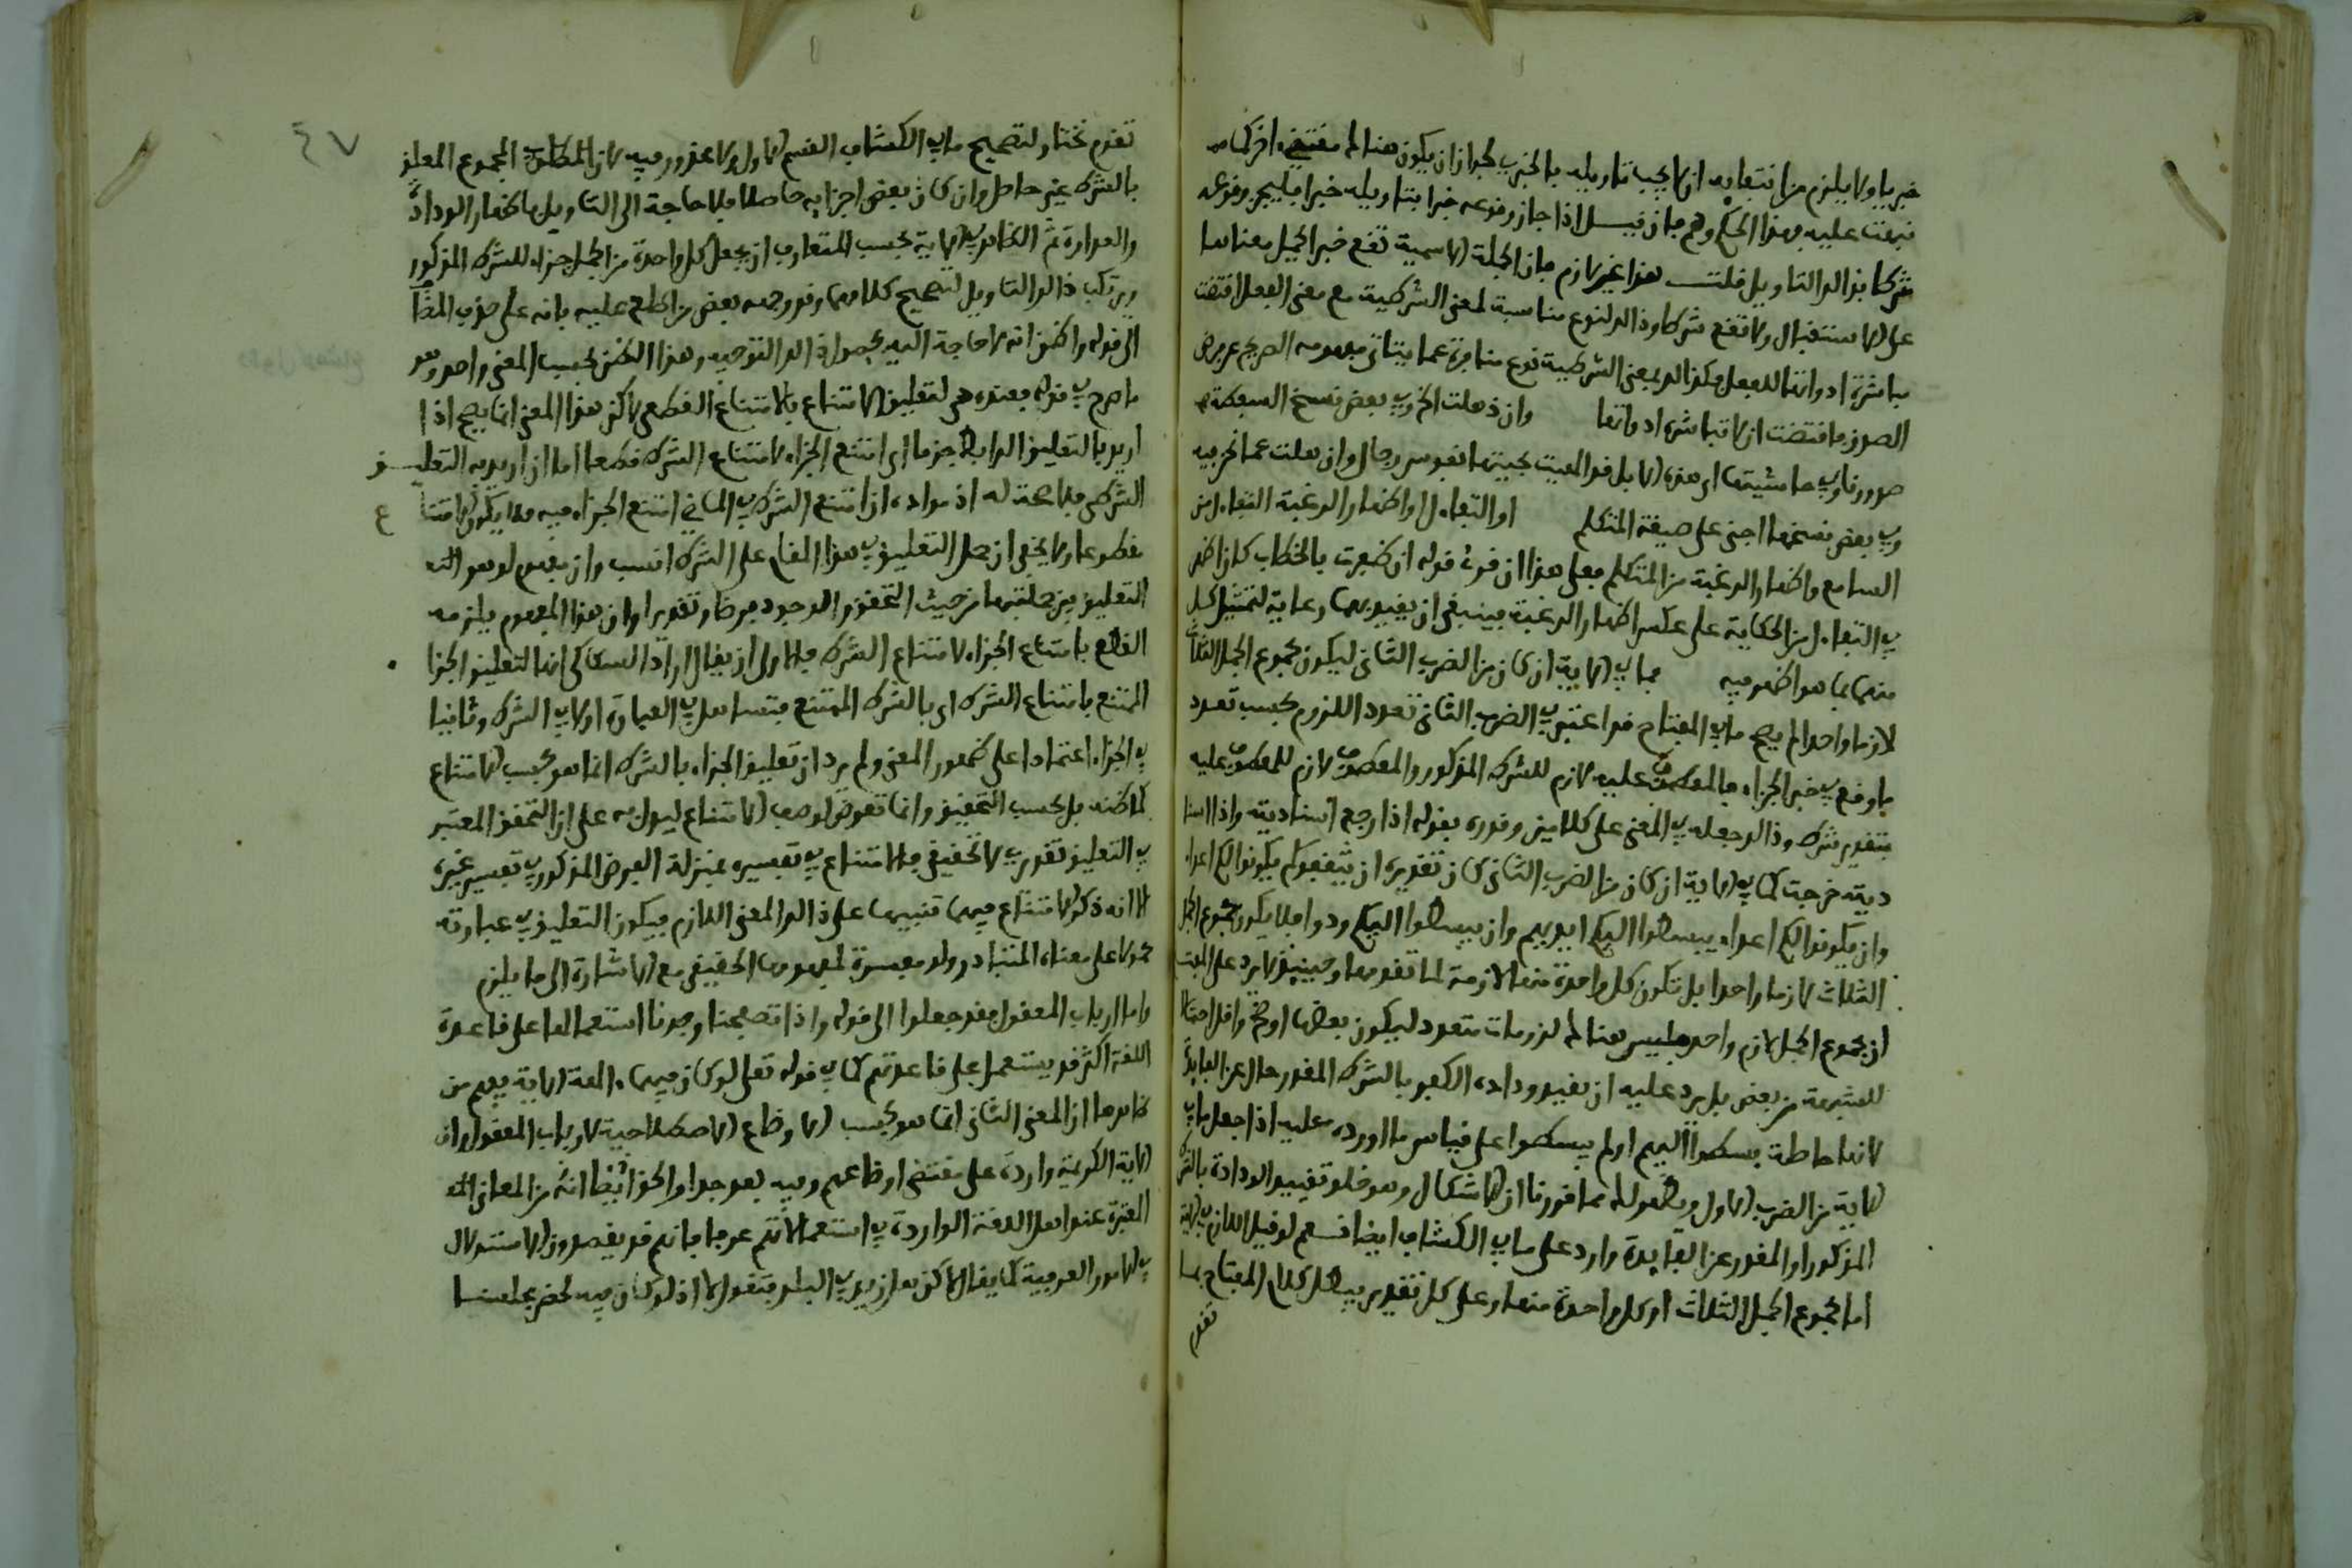 خبريا ولا يلزم من انتفائه ان لا يجب تاويله بالخبرى لجواز ان يكون هنالك مقتض اخر كما
نبهت عليه بهذا الحكم وهم فان قيل اذا جاز وقوعه خبرا بتاويله خبرا فليجز وقوعه
شرطا بذلك التاويل قلت هذا غير لازم فان الجملة الاسمية تقع خبرا لجمل معناها
على الاستقبال ولا تقع شرطا وذلك لنوع مناسبة لمعنى الشرطية مع معنى الفعل اقتضت
مباشرة ادواتها للفعل وكذلك بمعنى الشرطية نوع منافرة عما يتاتى مفهومه الصريح عن
الصدق فاقتضت ان لا تباشره ادواتها وان ذهلت الخ وفي بعض نسخ
صدورنا وفي حاشيتها اى هذه الابل قد العيت بحيتها نفوس رجال وان هلت عما نحن فيه
وفي بعض نسخها اجنى على صيغة المتكلم او التفاءل او اظهار الرغبة التفاءل من
السامع واظهار الرغبة من المتكلم فعلى هذا ان قرئ قوله ان ظفرت بالخطاب كان اظهر
في التفاءل من الحكاية على عكس اظهار الرغبة فينبغي ان يقيد بهما رعاية لتمثيل كل
منهما بما هو اظهر فيه فما في الاية ان كان من الضرب الثاني ليكون مجموع الجمل الثلاث
لازما واحدا لم يصح ما في المفتاح قد اعتبر في الضرب الثاني تعدد اللزوم بحسب تعدد
ما وقع في خبر الجزاء فالمعطوف عليه لازم للشرط المذكور والمعطوف لازم للمعطوف عليه
بتقدير شرط وذلك جعله في المعنى على كلامين وقدره بقوله اذا رجع استاذيته واذا استا
ذيته خرجت كما في الاية ان كان من الضرب الثاني كان تقديره ان يثقفوكم يكونوا لكم اعداء
وان يكونوا لكم اعداء يبسطوا اليكم ايديهم وان يبسطوا اليكم ودوا فلا يكون مجموع الجمل
الثلاث لازما واحدا بل تكون كل واحدة منها لازمة لما تقدمها وحينئذ لا يرد على
ان مجموع الجمل لازم واحد فليس هنالك لزومات متعدد ليكون بعضها اوضح واقل احتمالا
للشبهة من بعض بل يرد عليه ان تقييد ودادة الكفر بالشرط المقدر حال عن الفائدة
لانها حاصلة بسطوا اليهم اولم يبسطوا على قياس ما اورده عليه اذا جعل ما في
الاية من الضرب الاول ويظهر لك مما قررنا ان الاشكال وهو خلو تقييد الودادة بالشرط
المذكور او المقدر عن الفائدة وارد على ما في الكشاف ايضا فسم لو قيل اللازم في الاية
اما مجموع الجمل الثلاث او كل واحدة منها وعلى كل تقدير يبطل كلام المفتاح بما
تقدم
٤٧
تقدم نختار لتصحيح ما في الكشاف القسم الاول ولا محذور فيه لان المطلوب المجموع المعلق
بالشرط غير حاصل وان كان بعض اجزايه حاصلا فلا حاجة الى التاويل باظهار الودادة
والعداوة ثم الظاهر في الاية بحسب المتعارف ان يجعل كل واحدة من الجمل جزاء للشرط المذكور
ويرتكب ذلك التاويل لتصحيح كلامهما وقد وجهه بعض من اطلع عليه بانه على حذف المضا
الى قوله واظن انه لا حاجة اليه بحصول ذلك التوجيه وهذا الظن بحسب المعنى واحد وهو
ما صرح في قوله بعيده هي لتعليق الامتناع بالامتناع القطعي لا كن هذا المعنى انما يصح اذا
اريد بالتعليق الرابط جزما اى امتنع الجزاء لامتناع الشرط قطعا اما ان اريد به التعليق
الشرطي فلا صحة له اذ مراده ان امتنع الشرط في الماضي امتنع الجزاء فيه فلا يكون الامتناع
مقطوعا ولا يخفى ان حمل التعليق في هذا المقام على الشرط انسب وان مفهوم لو هو
التعليق بين جملتيها من حيث التحقق الوجود فرضا وتقديرا وان هذا المفهوم يلزمه
القطع بامتناع الجزاء لامتناع الشرط فالاولى ان يقال اراد السكاكي انها لتعليق الجزا
الممتنع بامتناع الشرط اى بالشرط الممتنع فتساهل في العبارة اولا في الشرط وثانيا
في الجزاء اعتمادا على ظهور المعنى ولم يرد ان تعليق الجزاء بالشرط انما هو بحسب الامتناع
كما ظنه بل بحسب التحقيق وانما تعرض لوصف الامتناع ليدل به على ان التحقق المعتبر
في التعليق تقديري لا تحقيقي فالامتناع في تفسيره بمنزلة الفرض المذكور في تفسير غيره
الا انه ذكر الامتناع فيهما تنبيها على ذلك المعنى اللازم فيكون التعليق في عبارته
محمولا على معناه المتبادر ولو مفسرة لمفهومها الحقيقي مع الاشارة الى ما يلزم
واما ارباب المعقول فقد جعلوا الى قوله واذا تصفحنا وجدنا استعمالها على قاعدة
اللغة اكثر قد يستعمل على قاعدتهم كما في قوله تعلى لو كان فيهما ءالهة الاية يفهم من
ظاهرها ان المعنى الثاني انما هو بحسب الاوضاع الاصطلاحية لارباب المعقول وان
الاية الكريمة واردة على مقتضى اوضاعهم وفيه بعد جدا والحق ايضا انه من المعاني
المعتبرة عند اهل اللغة الواردة في استعمالاتهم عرفا فانهم قد يقصدون الاستدلال
في الامور العرفية كما يقال لك هل زيد في البلد فتقول لا اذ لو كان فيه لحضر مجلسنا